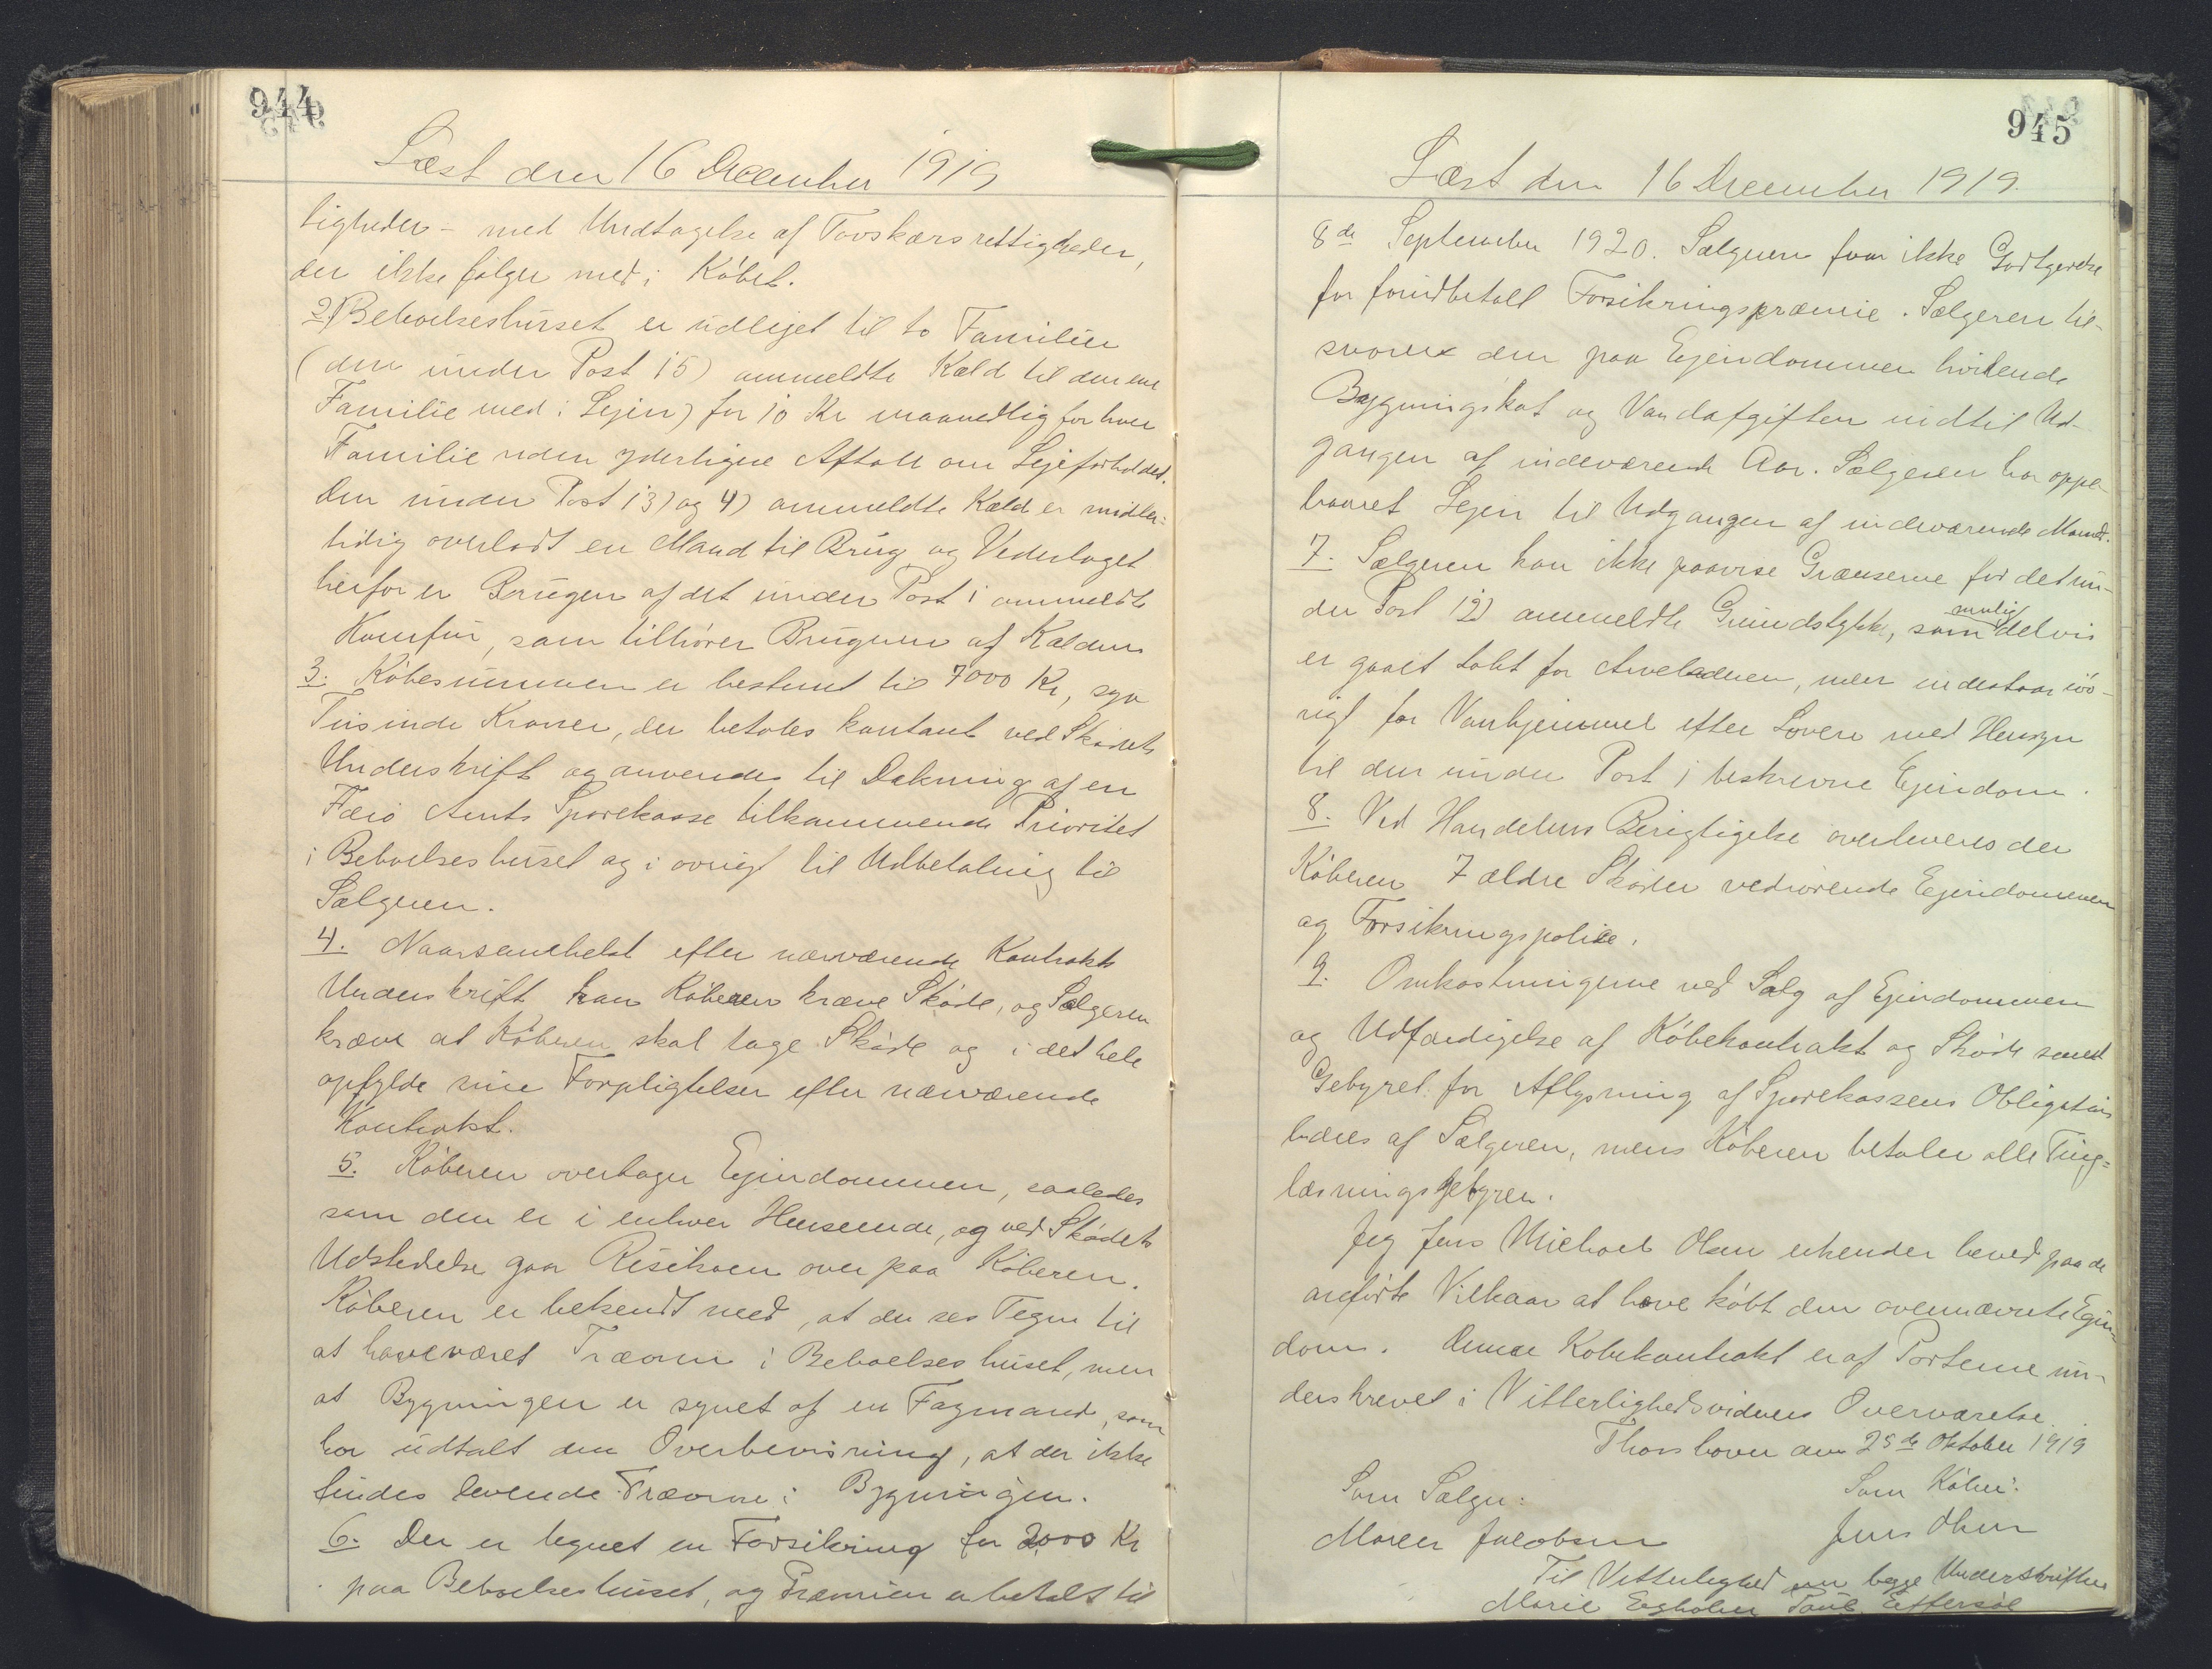 944
Læst den 16 December 1919
tigheder - med Undtagelse af Tovskærsrettigheder,
der ikke følger med i Købet.
2) Beboelseshuset er udlejet til to Familier
(den under Post 15) ommeldte Kæld til den ene
Familie med i Lejen) for 10 Kr maanedlig for hver
Familie uden yderligere Aftale om Lejeforholdet.
Den under Post 13) og 4) ommeldte Kæld er midler-
tidig overladt en Mand til Brug og Vederlaget
herfor er Brugen af det under Post 1 ommeldte
Komfur, som tilhører Brugeren af Kælderen
3. Købesummen er bestemt til 7000 Kr, syv
Tusinde Kroner, der betales kontant ved Skødets
Underskrift og anvendes til Dækning af en
Færø Amts Sparekasse tilkommende Prioritet
i Beboelseshuset og i øvrigt til Udbetaling til
Sælgeren.
4. Naarsomhelst efter nærværende Kontrakts
Underskrift kan Køberen kræve Skøde, og Sælgeren
kræve at Køberen skal tage Skøde og i det hele
opfylde sine Forpligtelser efter nærværende
Kontrakt.
5. Køberen overtager Ejendommen, saaledes
som den er i enhver Henseende, og ved Skødets
Udstedelse gaar Risikoen over paa Køberen.
Køberen er bekendt med, at der ses Tegn til
at have været Træorm i Beboelseshuset, men
at Bygningen er synet af en Fagmand, som
har udtalt den Overbevisning, at der ikke
findes levende Træorme i Bygningen.
6. Der er tegnet en Forsikring for 2000 Kr
paa Beboelseshuset, og Præmien er betalt til
945
Læst den 16 December 1919.
8de September 1920. Sælgeren faar ikke Godtgørelse
for forudbetalt Forsikringspræmie. Sælgeren til-
svarer den paa Ejendommen hvilende
Bygningskat og Vandafgiften indtil Ud-
gangen af indeværende Aar. Sælgeren har oppe-
baaret Lejen til Udgangen af indeværende Maaned.
7. Sælgeren kan ikke paavise Grænserne for det un-
der Post 12) ommeldte Grundstykke, som mulig delvis
er gaaet tabt for Arveladeren, men indestaar iøv-
rigt for Vanhjemmel efter Loven med Hensyn
til den under Post 1 beskrevne Ejendom.
8. Ved Handelens Berigtigelse overleveres der
Køberen 7 ældre Skøder vedrørende Ejendommen
og Forsikringspolice.
9. Omkostningerne ved Salg af Ejendommen
og Udfærdigelse af Købekontrakt og Skøde samt
Gebyret for Aflysning af Sparekassens Obligation
bæres af Sælgeren, mens Køberen betaler alle Ting-
læsningsgebyrer.
Jeg Jens Michael Olsen erkender herved paa de
anførte Vilkaar at have købt den ovennævnte Ejen-
dom. Denne Købekontrakt er af Parterne un-
derskrevet i Vitterlighedsvidners Overværelse.
Thorshavn den 25de Oktober 1919
Som Sælger: Som Køber:
Maren Jacobsen Jens Olsen
Til Vitterlighed om begge Underskrifter
Marie Egholm Poul Effersøe